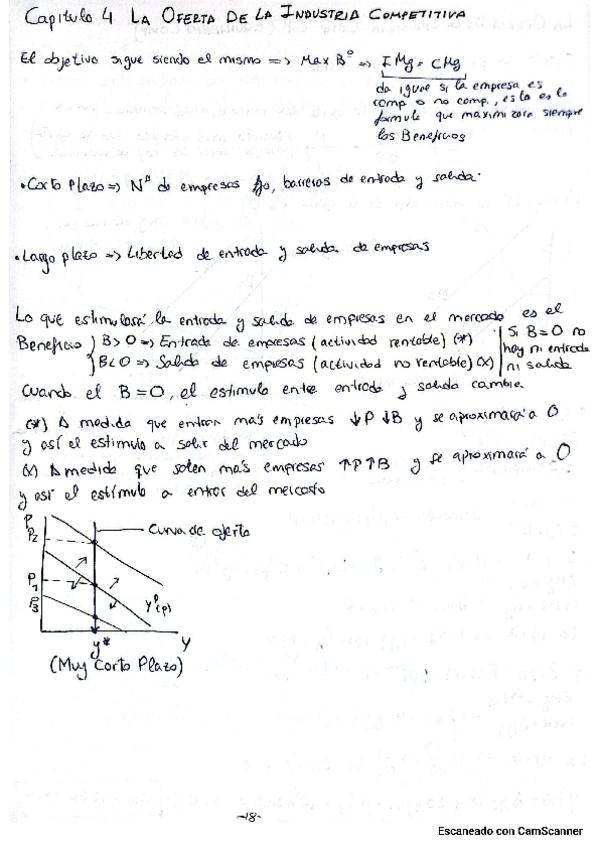 Capitulo 4 LA OFERTA DE LA INDUSTRIA COMPETITIVA
El objetivo sigue siendo el mismo => Max Bº => IMg = CMg
da igual si la empresa es
comp o no comp., esta es la
formula que maximizará siempre
los Beneficios
• Corto Plazo => Nº de empresas fijo, barreras de entrada y salida.
• Largo plazo => Libertad de entrada y salida de empresas
Lo que estimulará la entrada y salida de empresas en el mercado es el
Beneficio } B>0 => Entrada de empresas (actividad rentable) (*) | Si B=0 no
} B<0 => Salida de empresas (actividad no rentable) (x) | hay ni entrada
ni salida
Cuando el B=0, el estimulo entre entrada y salida cambia
(*) A medida que entran más empresas ↓P ↓B y se aproximará a 0
y así el estimulo a salir del mercado
(x) A medida que salen más empresas ↑P↑B y se aproximará a 0
y así el estímulo a entrar del mercado
P
P2
P1
P3
Curva de oferta
yD(p)
y*
y
(Muy Corto Plazo)
-18-
Escaneado con CamScanner